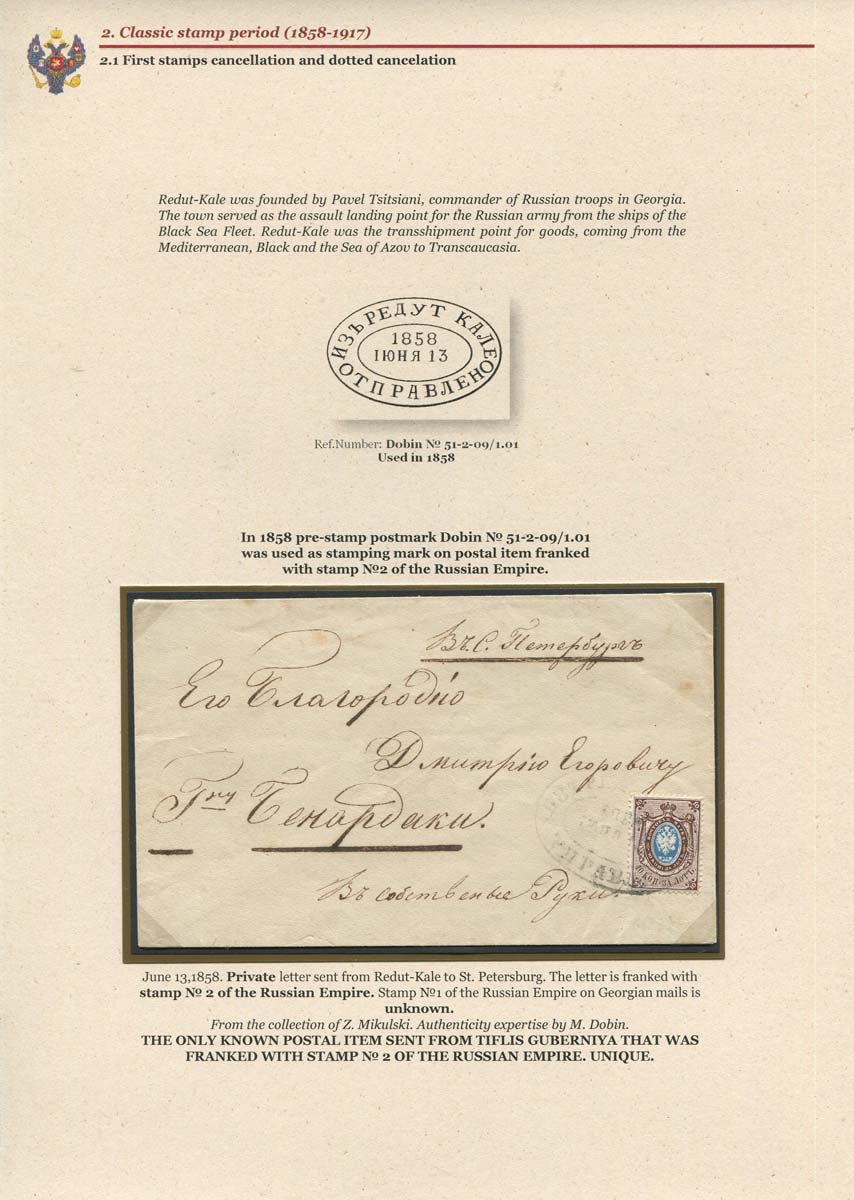 2. Classic stamp period (1858-1917)
2.1 First stamps cancellation and dotted cancelation
Redut-Kale was founded by Pavel Tsitsiani, commander of Russian troops in Georgia.
The town served as the assault landing point for the Russian army from the ships of the
Black Sea Fleet. Redut-Kale was the transshipment point for goods, coming from the
Mediterranean, Black and the Sea of Azov to Transcaucasia.
ИЗЪ РЕДУТ КАЛЕ
1858
ІЮНЯ 13
ОТПРАВЛЕНО
Ref.Number: Dobin № 51-2-09/1.01
Used in 1858
In 1858 pre-stamp postmark Dobin № 51-2-09/1.01
was used as stamping mark on postal item franked
with stamp №2 of the Russian Empire.
Въ С. Петербургъ
Его Благородію
Дмитрію Егоровичу
Гну Бенардаки.
Въ собственые Руки.
10 КОП. ЗА ЛОТЪ
June 13,1858. Private letter sent from Redut-Kale to St. Petersburg. The letter is franked with
stamp № 2 of the Russian Empire. Stamp №1 of the Russian Empire on Georgian mails is
unknown.
From the collection of Z. Mikulski. Authenticity expertise by M. Dobin.
THE ONLY KNOWN POSTAL ITEM SENT FROM TIFLIS GUBERNIYA THAT WAS
FRANKED WITH STAMP № 2 OF THE RUSSIAN EMPIRE. UNIQUE.